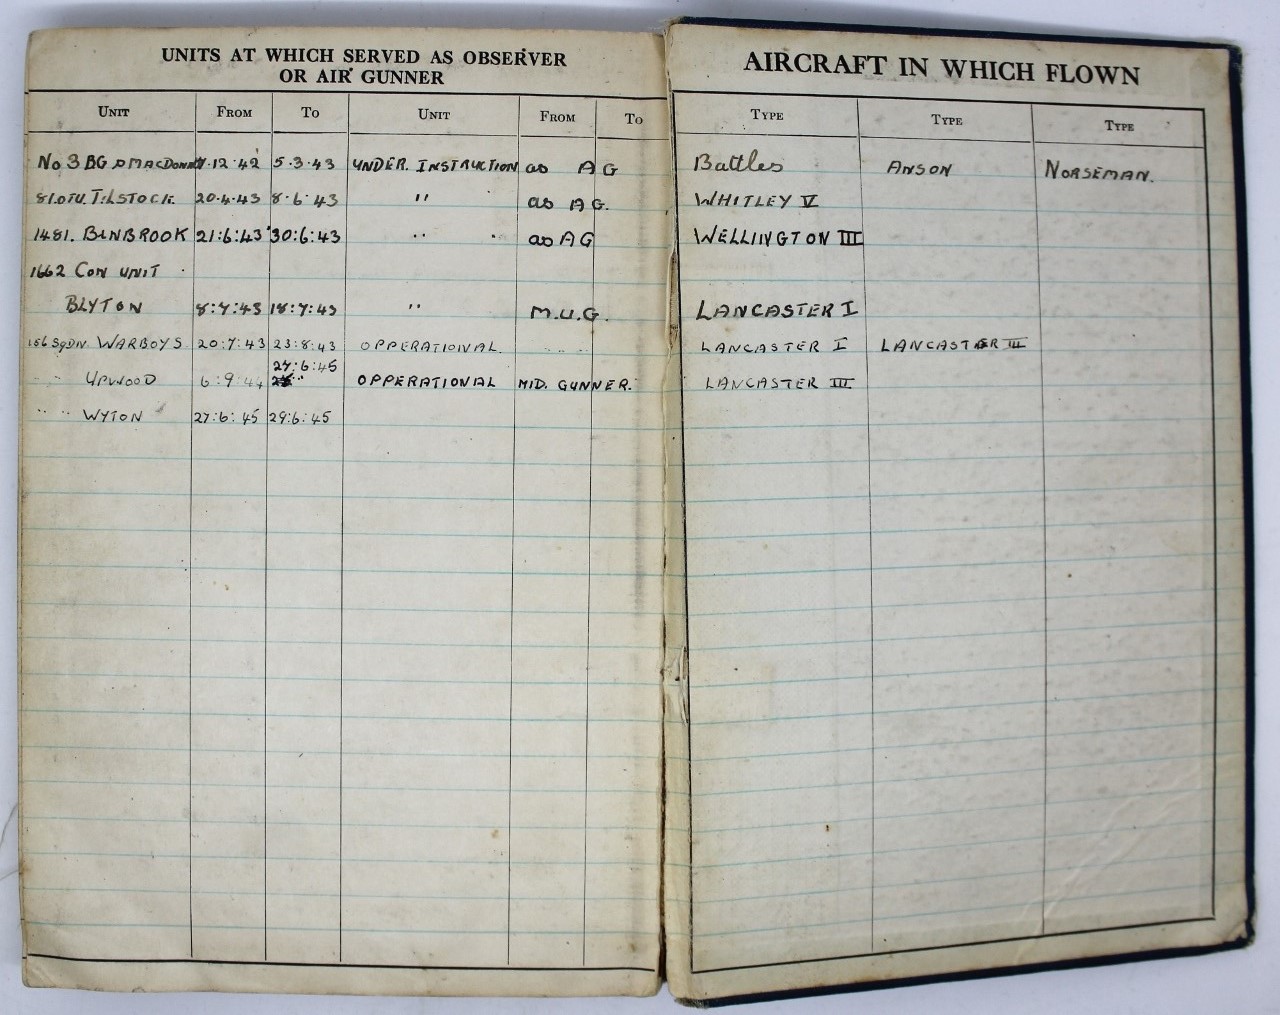 UNITS AT WHICH SERVED AS OBSERVER
OR AIR GUNNER
UNIT FROM TO UNIT FROM TO
No 3 BG MACDONALD .12.42 5.3.43 UNDER. INSTRUCTION as AG
81.OTU. TILSTOCK. 20.4.43 8.6.43 " as AG.
1481. BINBROOK 21:6:43 30:6:43 " as AG
1662 CON UNIT
BLYTON 8:7:43 18:7:43 " M.U.G.
156 SQDN. WARBOYS 20:7:43 23:8:43 OPPERATIONAL. " "
27:6:45
" " UPWOOD 6:9:44 OPPERATIONAL MID. GUNNER.
" " WYTON 27:6:45 29:6:45
AIRCRAFT IN WHICH FLOWN
TYPE TYPE TYPE
Battles ANSON NORSEMAN.
WHITLEY V
WELLIINGTON III
LANCASTER I
LANCASTER I LANCASTER III
LANCASTER III